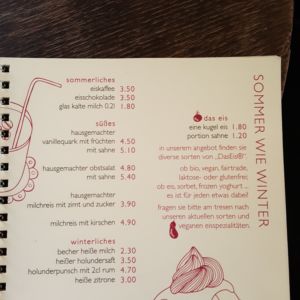 sommerliches
eiskaffee 3.50
eisschokolade 3.50
glas kalte milch 0.2l 1.80
süßes
hausgemachter
vanillequark mit früchten 4.50
mit sahne 5.10
hausgemachter obstsalat 4.80
mit sahne 5.40
hausgemachter
milchreis mit zimt und zucker 3.90
milchreis mit kirschen 4.90
winterliches
becher heiße milch 2.30
heißer holundersaft 3.50
holunderpunsch mit 2cl rum 4.70
heiße zitrone 3.00
das eis
eine kugel eis 1.80
portion sahne 1.20
in unserem angebot finden sie
diverse sorten von „DasEis®!“.
ob bio, vegan, fairtrade,
laktose- oder glutenfrei;
ob eis, sorbet, frozen yoghurt ...
es ist für jeden etwas dabei!
fragen sie bitte am tresen nach
unseren aktuellen sorten und
veganen eisspezialitäten.
SOMMER WIE WINTER